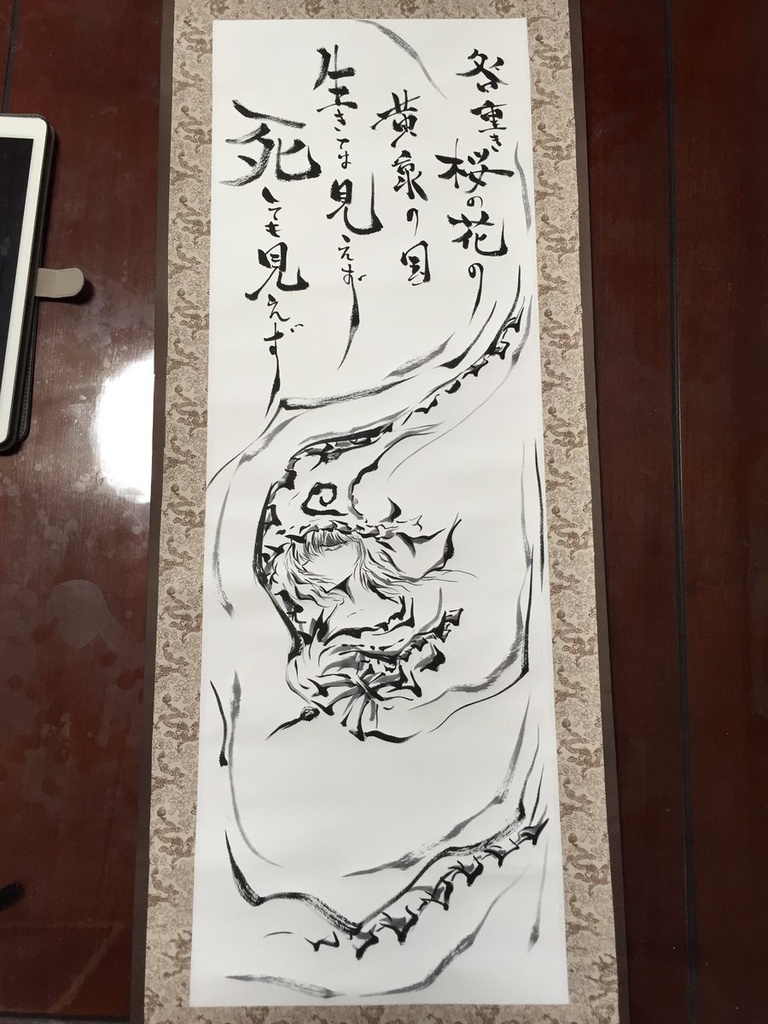 咎重き桜の花の
黄泉の国
生きては見えず
死しても見えず